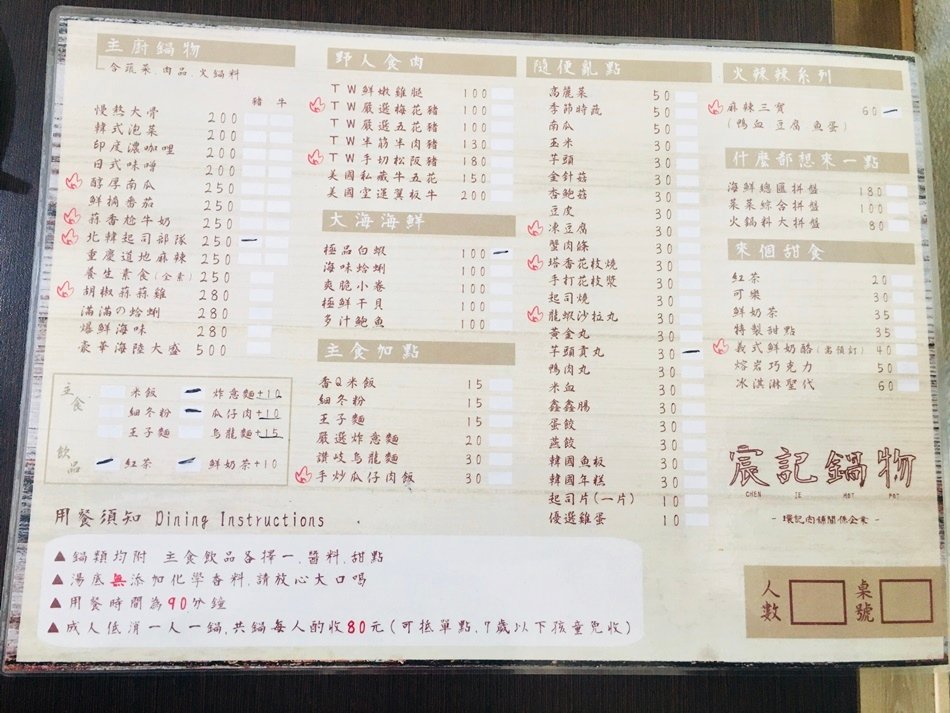 主廚鍋物
含蔬菜.肉品.火鍋料
豬 牛
慢熬大骨 200
韓式泡菜 200
印度濃咖哩 200
日式味噌 200
醇厚南瓜 250
鮮摘番茄 250
蒜香尬牛奶 250
北韓起司部隊 250
重慶道地麻辣 250
養生素食(全素) 250
胡椒蒜蒜雞 280
滿滿の蛤蜊 280
爆鮮海味 280
豪華海陸大盛 500
主食
米飯 炸意麵+10
細冬粉 瓜仔肉+10
王子麵 烏龍麵+15
飲品
紅茶 鮮奶茶+10
野人食肉
TW鮮嫩雞腿 100
TW嚴選梅花豬 100
TW嚴選五花豬 100
TW半筋半肉豬 130
TW手切松阪豬 180
美國私藏牛五花 150
美國空運翼板牛 200
大海海鮮
極品白蝦 100
海味蛤蜊 100
爽脆小卷 100
極鮮干貝 100
多汁鮑魚 100
主食加點
香Q米飯 15
細冬粉 15
王子麵 15
嚴選炸意麵 20
讚岐烏龍麵 30
手炒瓜仔肉飯 30
隨便亂點
高麗菜 50
季節時蔬 50
南瓜 50
玉米 30
芋頭 30
金針菇 30
杏鮑菇 30
豆皮 30
凍豆腐 30
蟹肉條 30
塔香花枝燒 30
手打花枝漿 30
起司燒 30
龍蝦沙拉丸 30
黃金丸 30
芋頭貢丸 30
鴨肉丸 30
米血 30
鑫鑫腸 30
蛋餃 30
燕餃 30
韓國魚板 30
韓國年糕 30
起司片(一片) 10
優選雞蛋 10
火辣辣系列
麻辣三寶 60
(鴨血 豆腐 魚蛋)
什麼都想來一點
海鮮總匯拼盤 180
菜菜綜合拼盤 100
火鍋料大拼盤 80
來個甜食
紅茶 20
可樂 30
鮮奶茶 35
特製甜點 35
義式鮮奶酪(需預訂) 40
熔岩巧克力 50
冰淇淋聖代 60
宸記鍋物
CHEN IE HOT POT
- 環記肉鋪關係企業 -
人數 桌號
用餐須知 Dining Instructions
▲鍋類均附 主食飲品各擇一.醬料.甜點
▲湯底無添加化學香料,請放心大口喝
▲用餐時間為90分鐘
▲成人低消一人一鍋,共鍋每人酌收80元(可抵單點,7歲以下孩童免收)